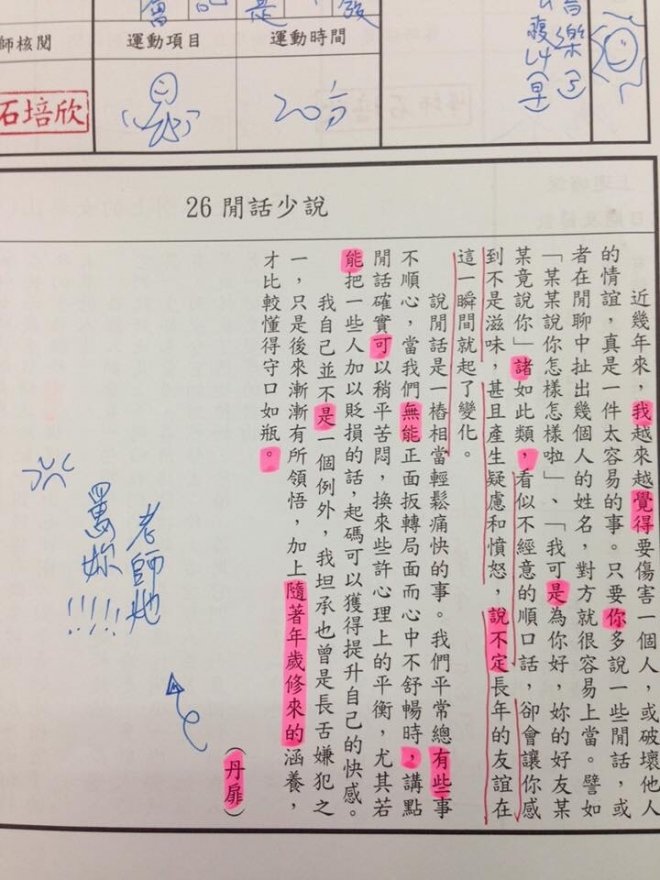 師核閱
運動項目
運動時間
石培欣
20分
26 閒話少說
近幾年來，我越來越覺得要傷害一個人，或破壞他人
的情誼，真是一件太容易的事。只要你多說一些閒話，或
者在閒聊中扯出幾個人的姓名，對方就很容易上當。譬如
「某某說你怎樣怎樣啦」、「我可是為你好，妳的好友某
某竟說你」諸如此類，看似不經意的順口話，卻會讓你感
到不是滋味，甚且產生疑慮和憤怒，說不定長年的友誼在
這一瞬間就起了變化。
說閒話是一樁相當輕鬆痛快的事。我們平常總有些事
不順心，當我們無能正面扳轉局面而心中不舒暢時，講點
閒話確實可以稍平苦悶，換來些許心理上的平衡，尤其若
能把一些人加以貶損的話，起碼可以獲得提升自己的快感。
我自己並不是一個例外，我坦承也曾是長舌嫌犯之
一，只是後來漸漸有所領悟，加上隨著年歲修來的涵養，
才比較懂得守口如瓶。
（丹扉）
老師她
罵妳!!!!